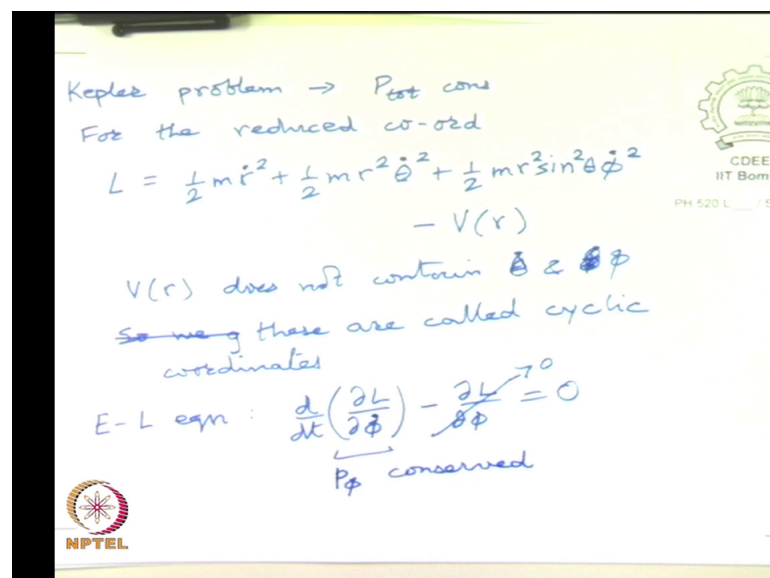 Kepler problem → P_tot cons
For the reduced co-ord
L = ½ m ṙ² + ½ m r² θ̇² + ½ m r² sin²θ φ̇²
− V(r)
V(r) does not contain θ & φ
~~So we g~~ these are called cyclic
coordinates
E-L eqn : d/dt (∂L/∂φ̇) − ∂L/∂φ → 0 = 0
P_φ conserved
CDEE
IIT Bom
PH 520 L / S
NPTEL